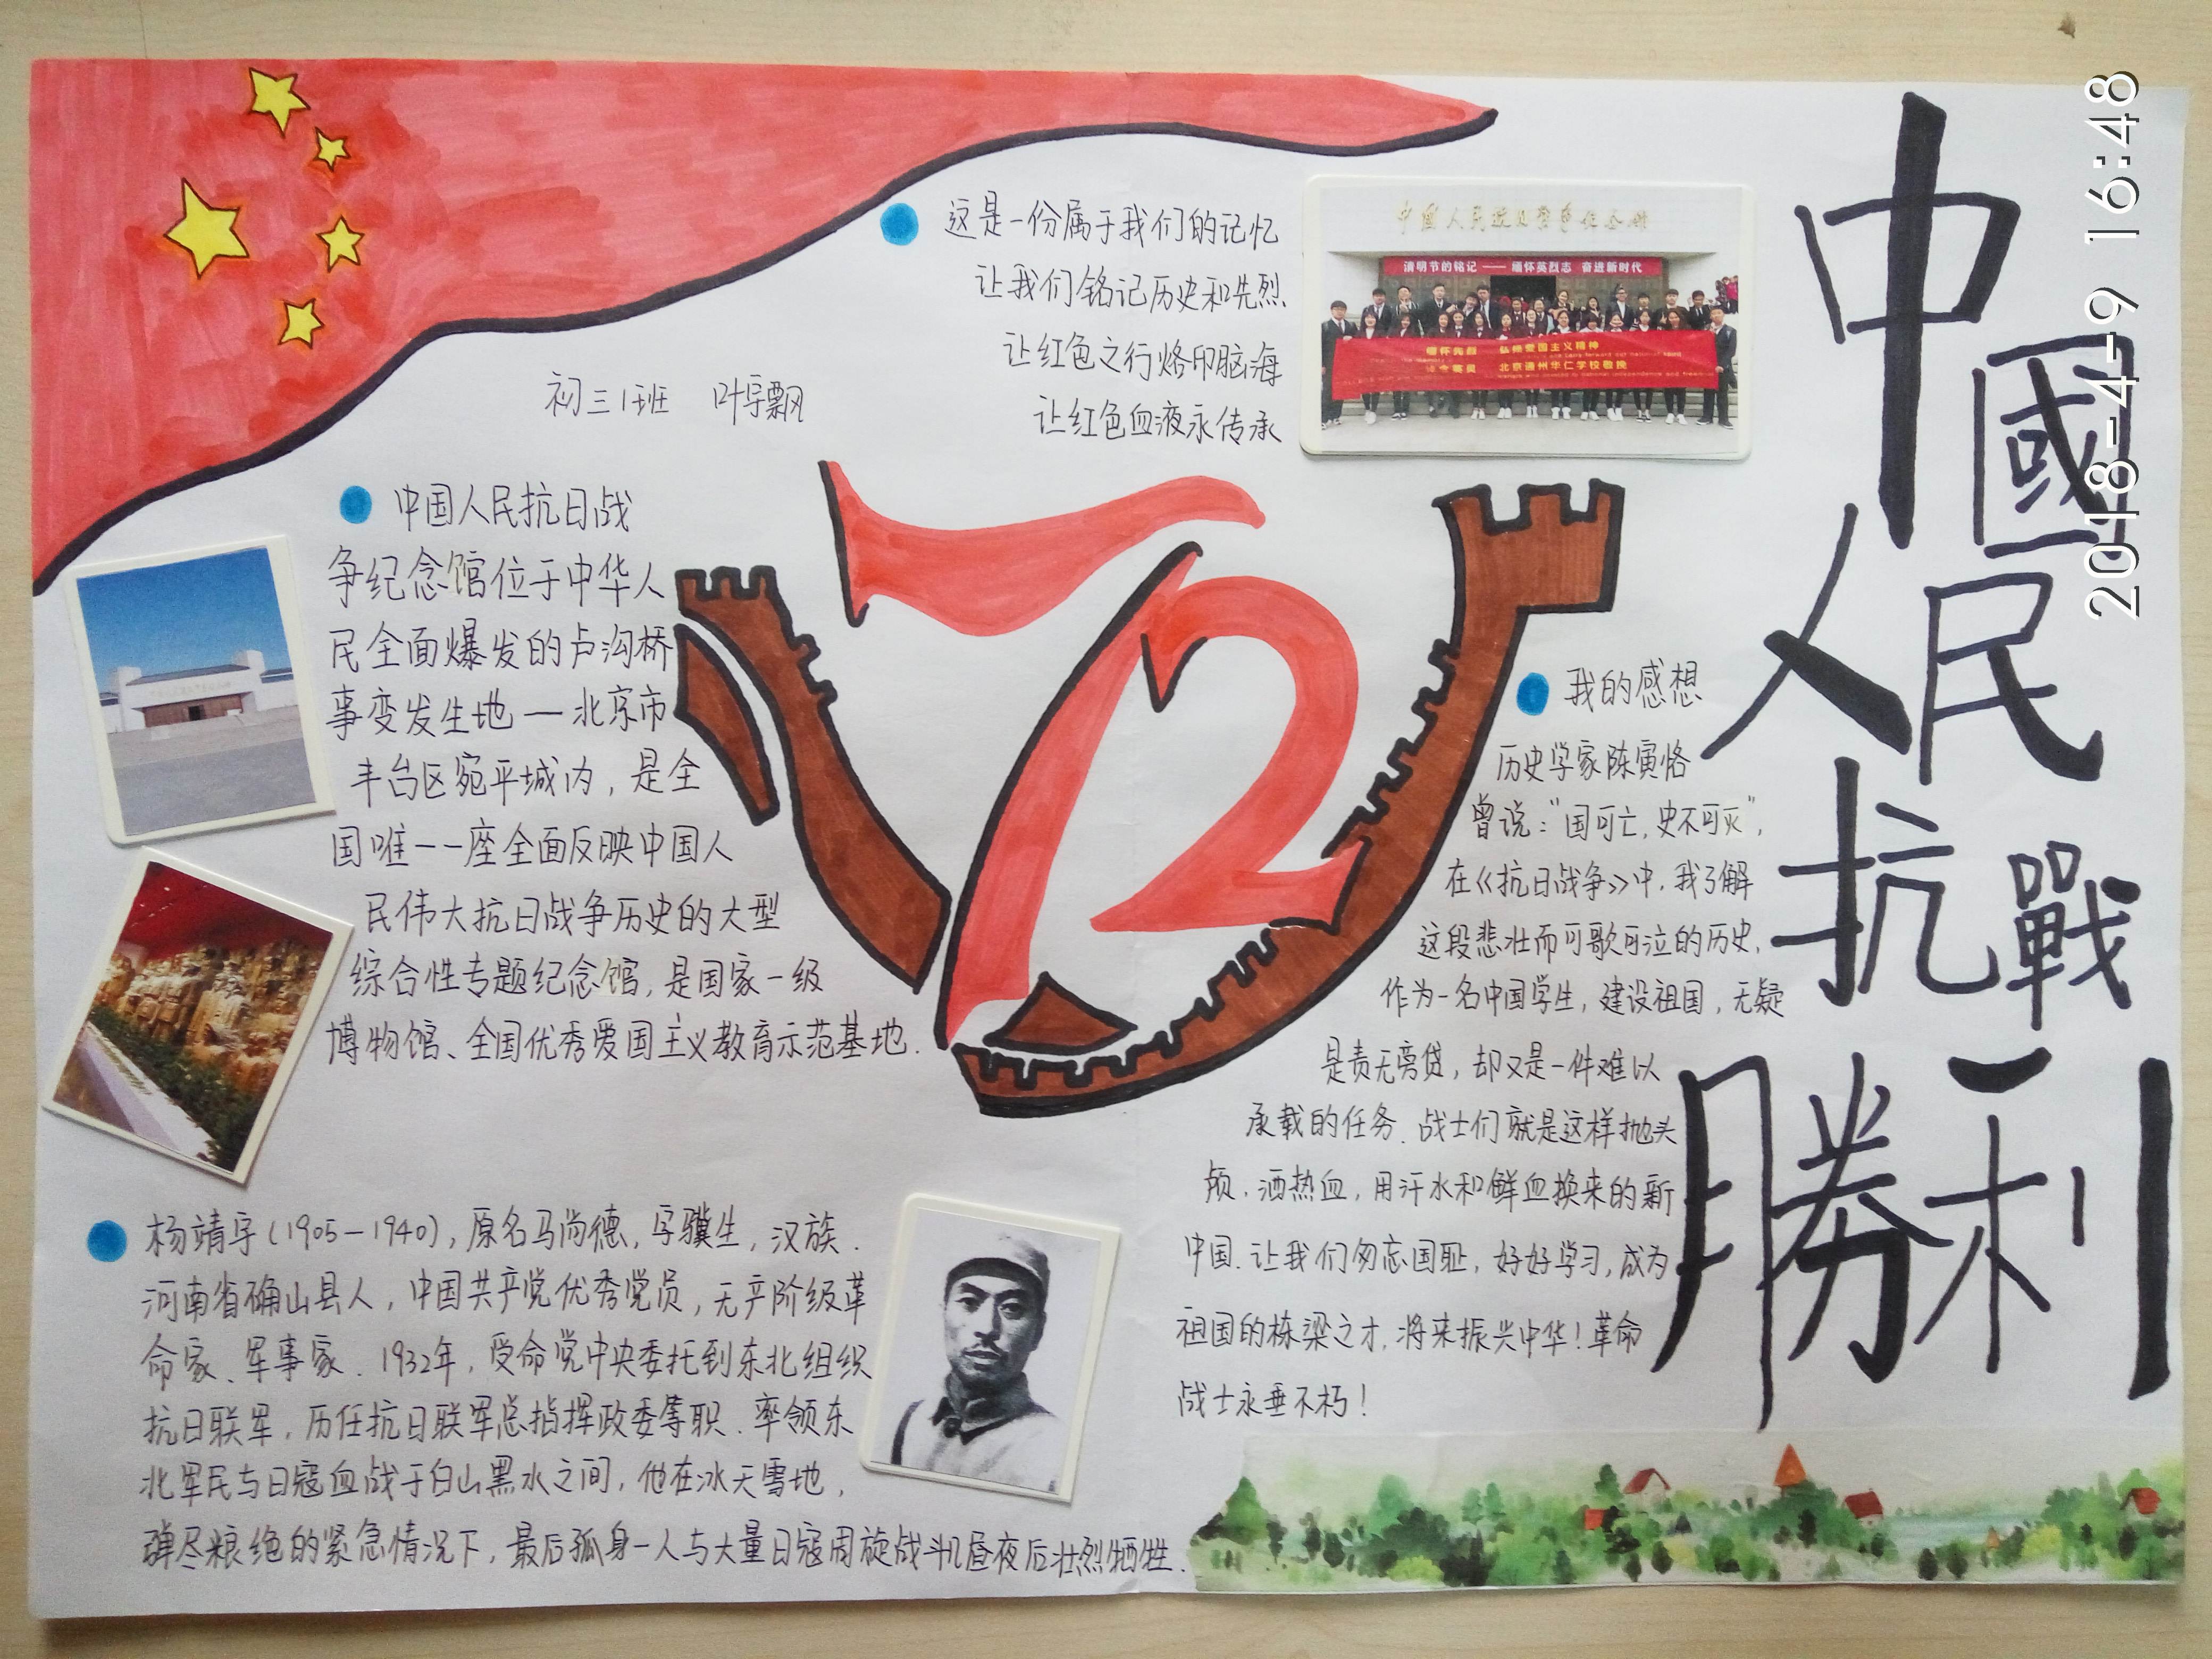 中國
人民
抗戰
勝利
2018-4-9 16:48
初三1班 叶宇飘
这是一份属于我们的记忆
让我们铭记历史和先烈
让红色之行烙印脑海
让红色血液永传承
中国人民抗日战争纪念馆
清明节的铭记——缅怀英烈志 奋进新时代
缅怀先烈 弘扬爱国主义精神
北京通州华仁学校敬挽
72
中国人民抗日战
争纪念馆位于中华人
民全面爆发的卢沟桥
事变发生地—北京市
丰台区宛平城内，是全
国唯一一座全面反映中国人
民伟大抗日战争历史的大型
综合性专题纪念馆，是国家一级
博物馆、全国优秀爱国主义教育示范基地.
我的感想
历史学家陈寅恪
曾说："国可亡,史不可灭",
在《抗日战争》中,我了解
这段悲壮而可歌可泣的历史,
作为一名中国学生，建设祖国，无疑
是责无旁贷，却又是一件难以
承载的任务.战士们就是这样抛头
颅.洒热血，用汗水和鲜血换来的新
中国.让我们勿忘国耻，好好学习,成为
祖国的栋梁之才,将来振兴中华！革命
战士永垂不朽！
杨靖宇(1905—1940),原名马尚德,字骥生，汉族.
河南省确山县人，中国共产党优秀党员，无产阶级革
命家、军事家.1932年，受命党中央委托到东北组织
抗日联军，历任抗日联军总指挥政委等职.率领东
北军民与日寇血战于白山黑水之间，他在冰天雪地，
弹尽粮绝的紧急情况下，最后孤身一人与大量日寇周旋战斗几昼夜后壮烈牺牲.